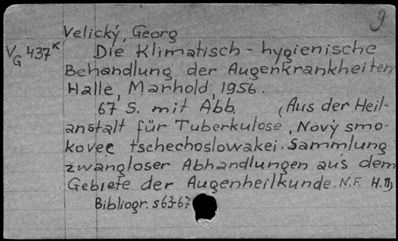 g
Velický, Georg
V G 437 K Die Klimatisch-hygienische
Behandlung der Augenkrankheiten
Halle, Marhold, 1956.
67 S. mit Abb (Aus der Heil-
anstalt für Tuberkulose, Nový smo-
kovec tschechoslowakei. Sammlung
zwangloser Abhandlungen aus dem
Gebiete der Augenheilkunde. N.F. H.
Bibliogr. s 63-67